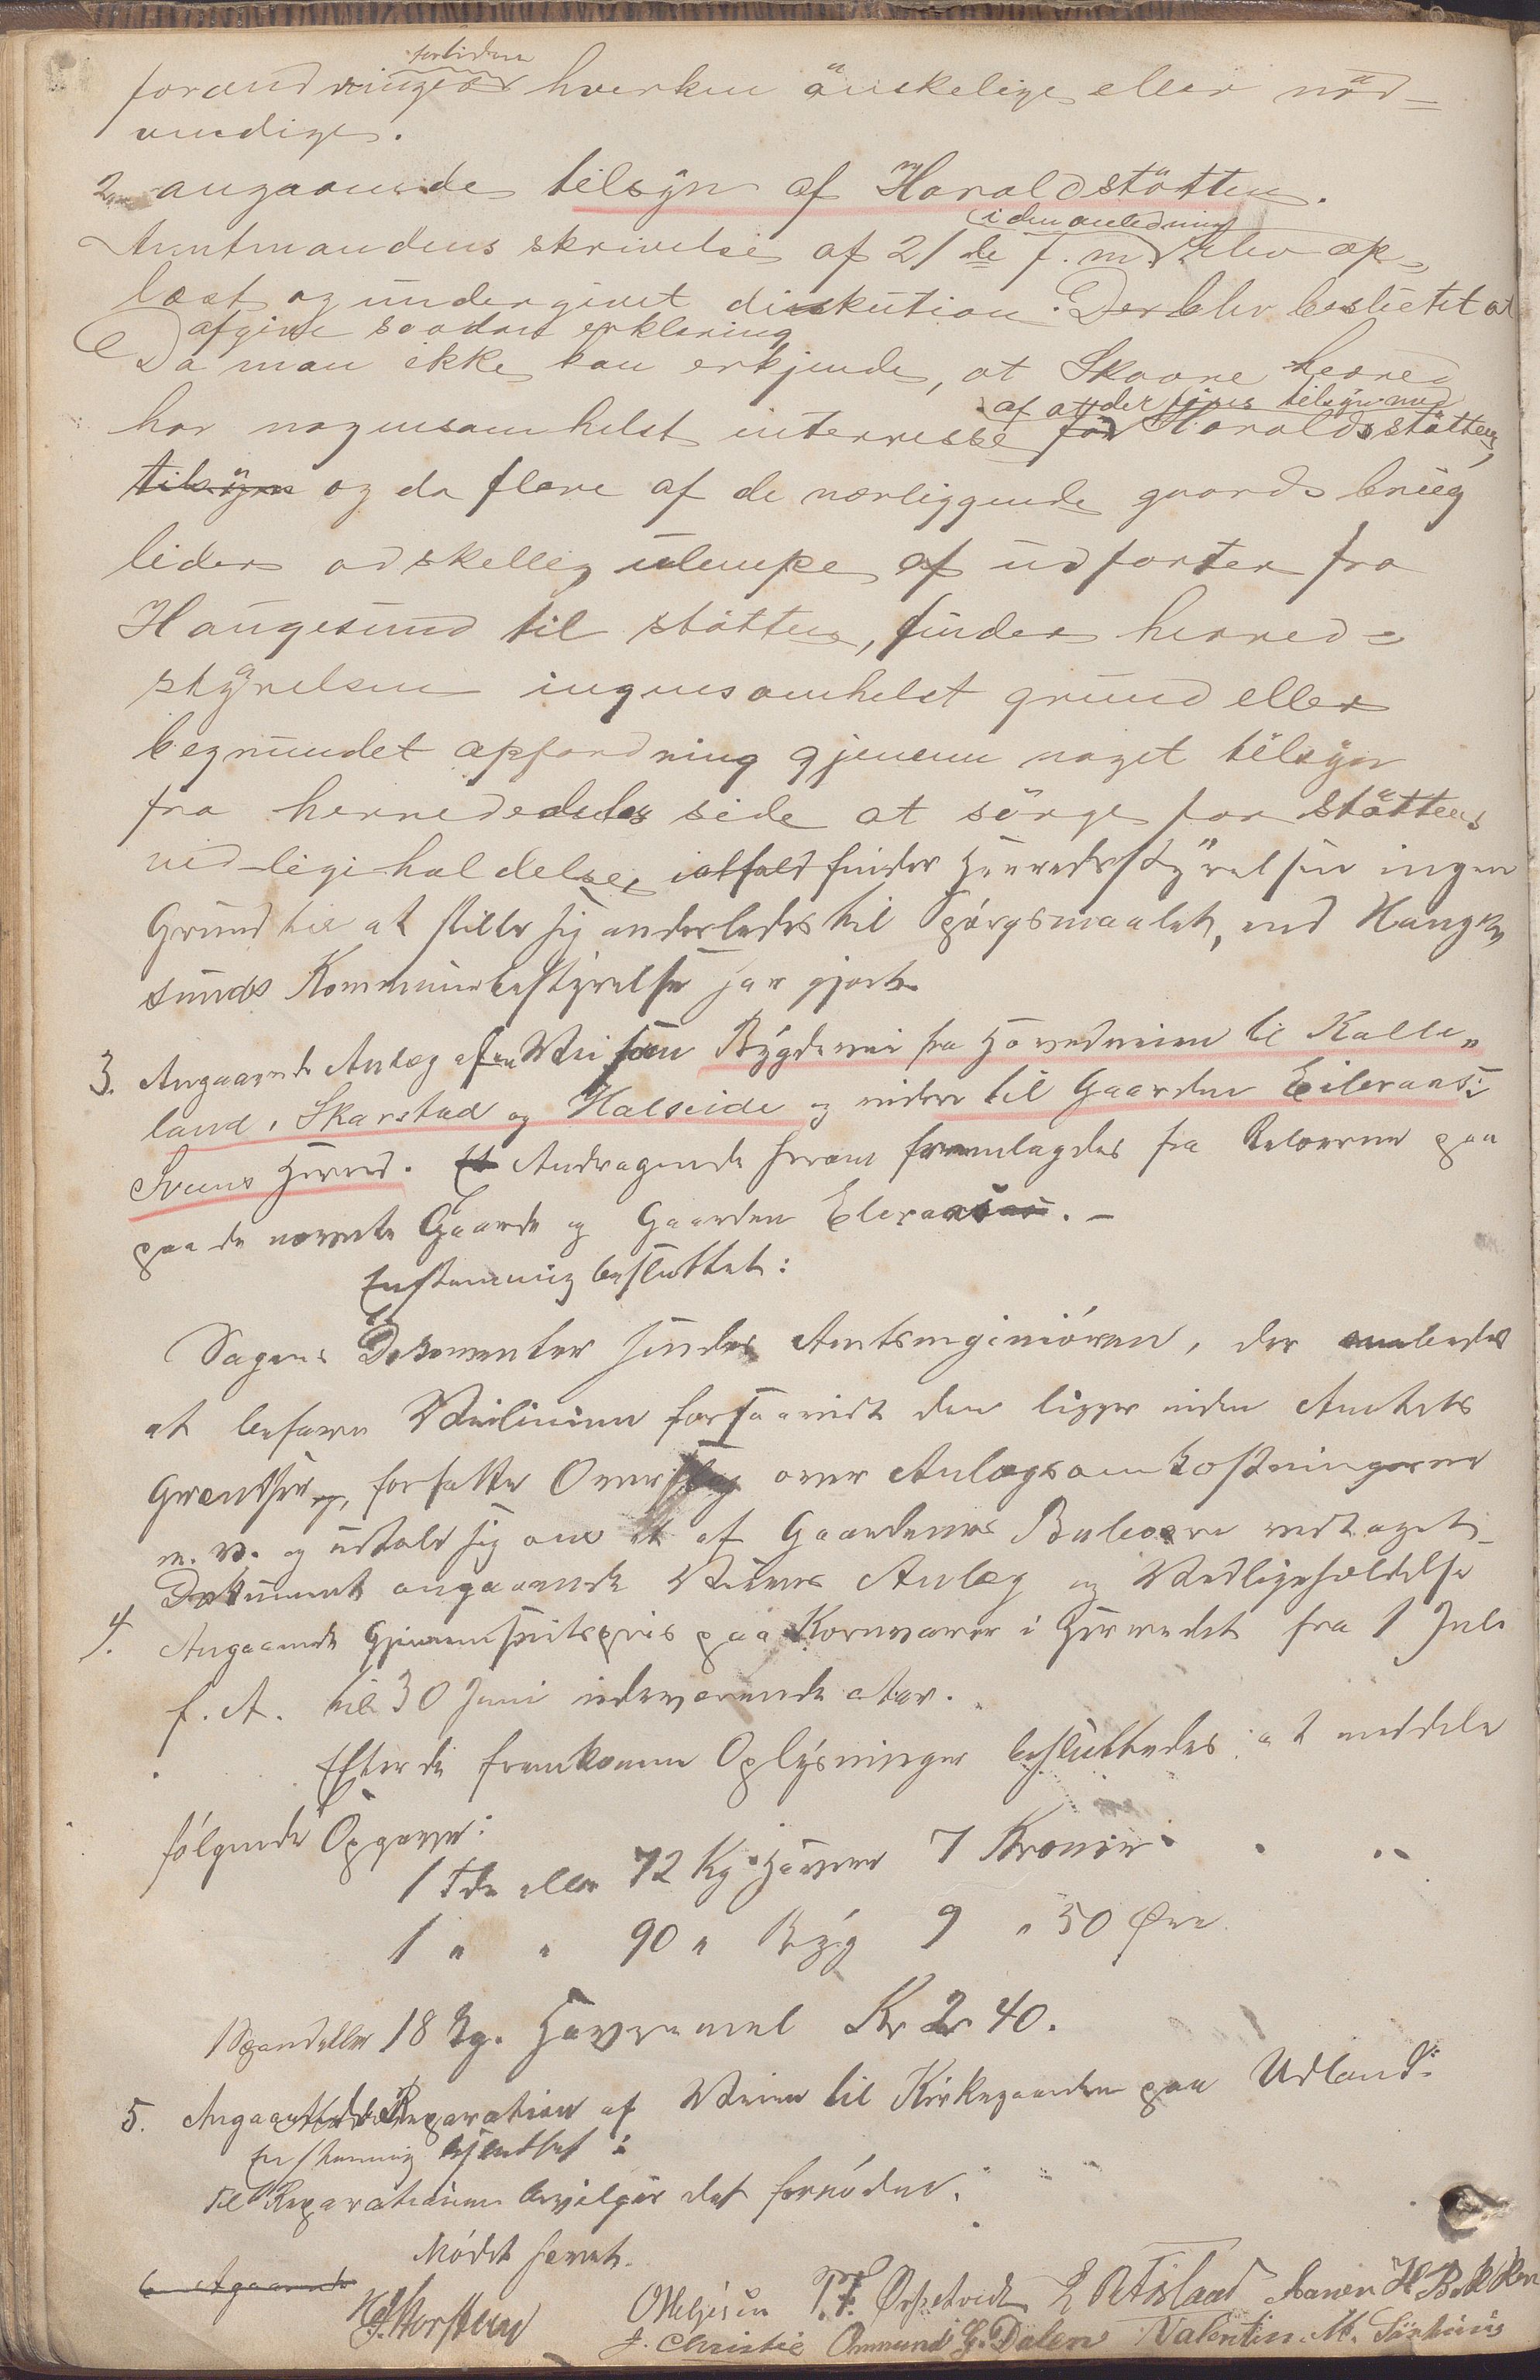 fortiden
forandringer hverken önskelige eller nöd-
vendige.
2 angaaende tilsyn af Haraldstötten.
i den anledning
Amtmandens skrivelse af 21de f. m. blev op-
læst og undergivet diskution. Der blev besluttet at
afgive saadan erklæring
Da man ikke kan erkjende, at Skaare herred
af at der föres tilsyn med
har nogensomhelst interresse for Haraldsstötten,
tilsyn og da flere af de nærliggende gaards brug
lider adskellig ulempe af udfarter fra
Haugesund til stötten, finder herred-
styrelsen ingensomhelst grund eller
begrundet opfordning gjenem noget tilsyn
fra herrededets side at sörge for stöttens
vedligeholdelse, ialfald finder Herredsstyrelsen ingen
Grund til at stille sig anderledes til Spörgsmaalet, end Hauge-
sunds Kommunebestyrelse har gjort.
3. Angaaende Anlæg af en Vei som Bygdevei fra Hovedveien til Kalle-
land, Skarstad og Halseide og videre til Gaarden Eileraas i
Sveens Herred. Et Andragende herom fremlagdes fra Beboerne paa
paa de nævnte Gaarde og Gaarden Eleraas. -
Enstemmig besluttet:
Sagens Dokumenter sendes Amtsingeniören, der anbedes
at befare Veilinien forsaavidt den ligger inden Amtets
Grændser, forfatte Overslag over Anlægsomkostningerne
m. v. og udtale sig om et af Gaardenes Beboere vedtaget
Dokument angaaende Veiens Anlæg og Vedligeholdelse
4. Angaaende Gjennemsnitspris paa Kornvarer i Herredet fra 1 Juli
f. A. til 30 Juni indeværende Aar.
Efter de fremkomne Oplysninger besluttedes at meddele
fölgende Opgave:
1 Tde eller 72 Kg. Havre 7 Kroner
1 " " 90 " Byg 9 " 50 Øre
1 Spand eller 18 Kg. Havremel Kr 2 40.
5. Angaaende Reparation af Veien til Kirkegaarden paa Udland:
Enstemmig besluttet:
Til Reparationen bevilges det fornödne.
Mödet hævet.
6 Agaaende
H. J. Storsteen O Helgesen T. F. Ørpetvedt Hansen H Bakken
J. Christie Ommund G. Dalen Valentin M. Sörhuus